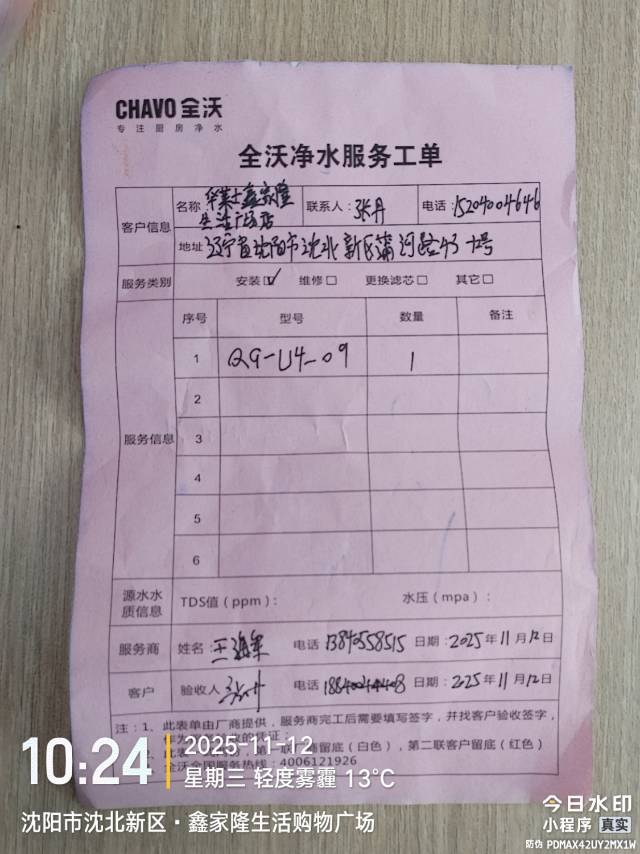 CHAVO 全沃
专注厨房净水
全沃净水服务工单
客户信息
名称 华莱士鑫家隆生活广场店
联系人：张丹
电话：15204004646
地址 辽宁省沈阳市沈北新区蒲河路43-7号
服务类别
安装☑ 维修□ 更换滤芯□ 其它□
服务信息
序号 型号 数量 备注
1 QG-U4-09 1
2
3
4
5
6
源水水质信息
TDS值（ppm）： 水压（mpa）：
服务商 姓名：王海军 电话 13840558515 日期：2025年11月12日
客户 验收人 张丹 电话 日期：2025年11月12日
注：1、此表单由厂商提供，服务商完工后需要填写签字，并找客户验收签字，
留底（白色），第二联客户留底（红色）
全沃全国服务热线：4006121926
10:24
2025-11-12
星期三 轻度雾霾 13°C
沈阳市沈北新区·鑫家隆生活购物广场
今日水印
小程序 真实
防伪 PDMAX42UY2MX1W